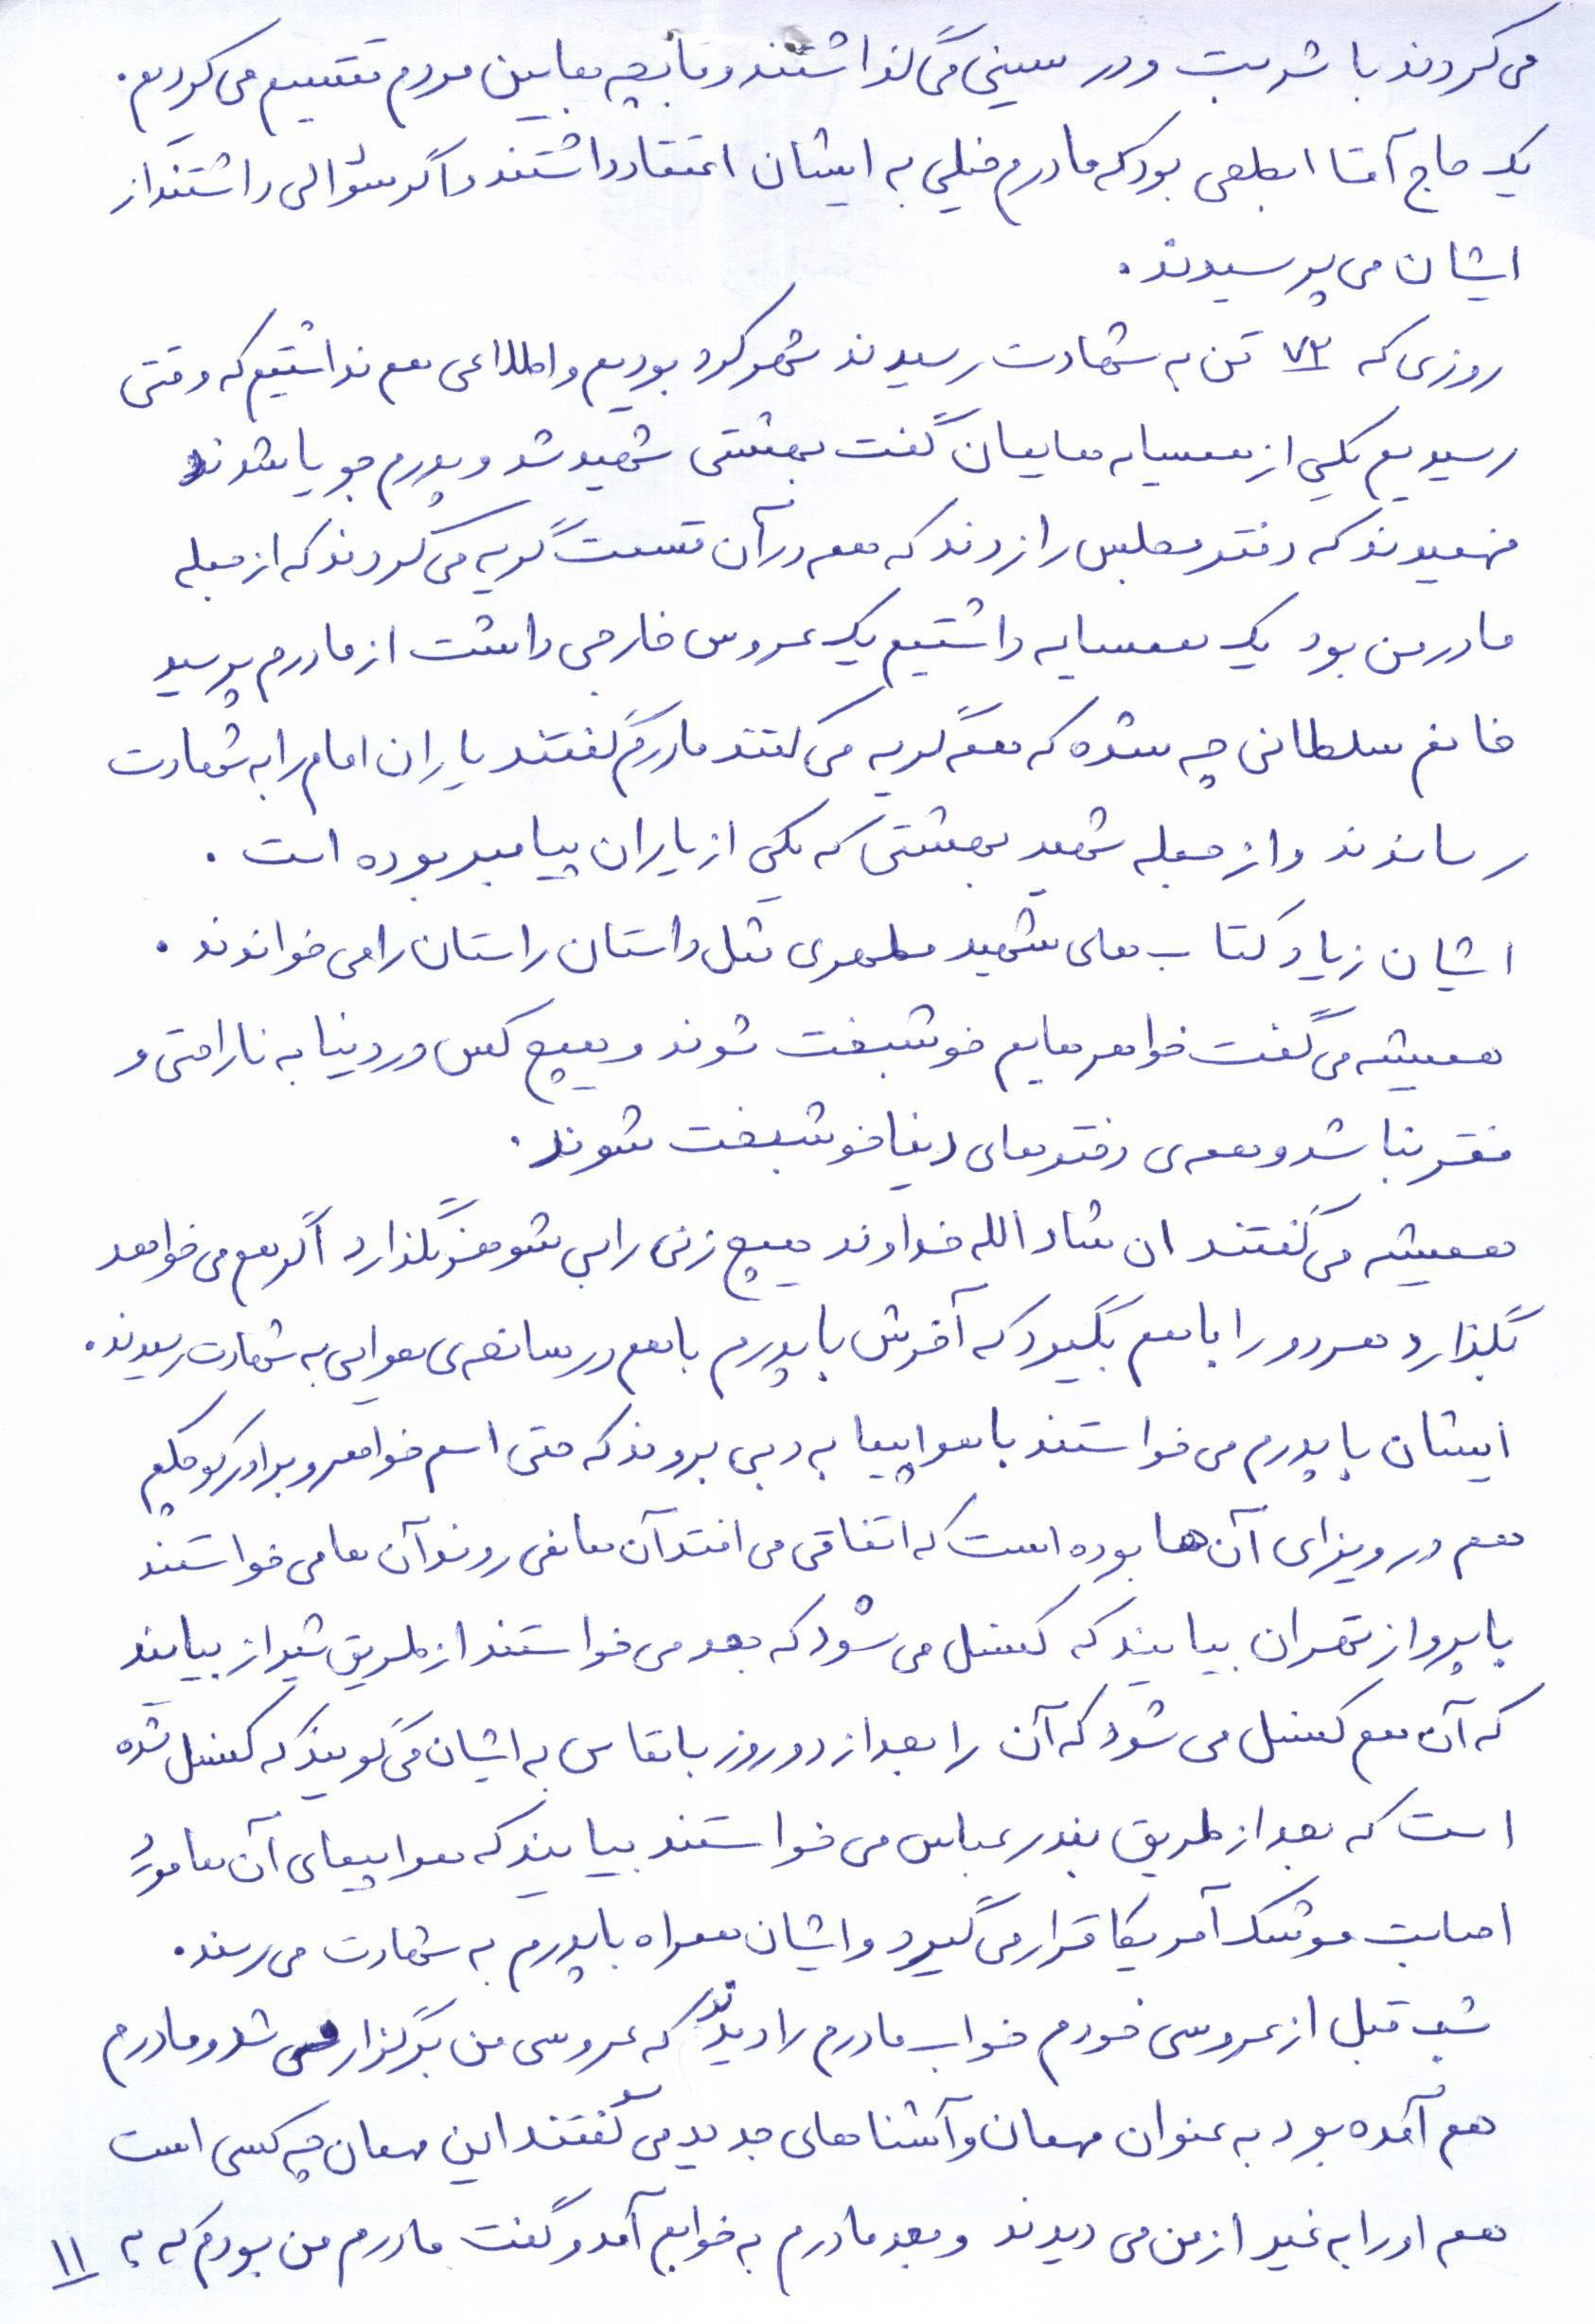 می کردند با شربت ودر سینی می گذاشتند و مابقیه مابین مردم تقسیم می کردیم.
یک حاج آقا ابطحی بود که مادرم خیلی به ایشان اعتقاد داشتند و اگر سئوالی داشتند از
ایشان می پرسیدند.
روزی که ۷۲ تن به شهادت رسیدند شهرکرد بودیم و اطلاعی هم نداشتیم که وقتی
رسیدیم یکی از همسایه هایمان گفت بهشتی شهید شد و پدرم جویا شدند
فهمیدند که دفتر مجلس را زدند که همه در آن قسمت گریه می کردند که از جمله
مادر من بود یک همسایه داشتیم یک عروس خارجی داشت از مادرم پرسید
خانم سلطانی چه شده که همه گریه می کنند مادرم گفتند یاران امام را به شهادت
رساندند و از جمله شهید بهشتی که یکی از یاران پیامبر بوده است.
ایشان زیاد کتاب های شهید مطهری مثل داستان راستان را می خواندند.
همیشه می گفت خواهرهایم خوشبخت شوند و هیچ کس در دنیا به ناراحتی و
فقر نباشد و همه ی دخترهای دنیا خوشبخت شوند.
همیشه می گفتند ان شاء الله خداوند هیچ زنی را بی شوهر نگذارد اگر هم می خواهد
بگذارد هر دو را با هم بگیرد که آخرش با پدرم با هم در سانحه ی هوایی به شهادت رسیدند.
ایشان با پدرم می خواستند با هواپیما به دبی بروند که حتی اسم خواهر و برادر کوچکم
هم در ویزای آن ها بوده است که اتفاقی می افتد آن ها نمی روند آن ها می خواستند
با پرواز تهران بیایند که کنسل می شود که بعد می خواستند از طریق شیراز بیایند
که آن هم کنسل می شود که آن را بعد از دو روز با تماس به ایشان می گویند که کنسل شده
است که بعد از طریق بندرعباس می خواستند بیایند که هواپیمای آن ها مورد
اصابت موشک آمریکا قرار می گیرد و ایشان همراه با پدرم به شهادت می رسند.
شب قبل از عروسی خودم خواب مادرم را دیدند که عروسی من برگزار می شد و مادرم
هم آمده بود به عنوان مهمان و آشناهای جدید می گفتند این مهمان چه کسی است
همه او را به غیر از من می دیدند و بعد مادرم به خوابم آمد و گفت مادرم من بودم که به ۱۱